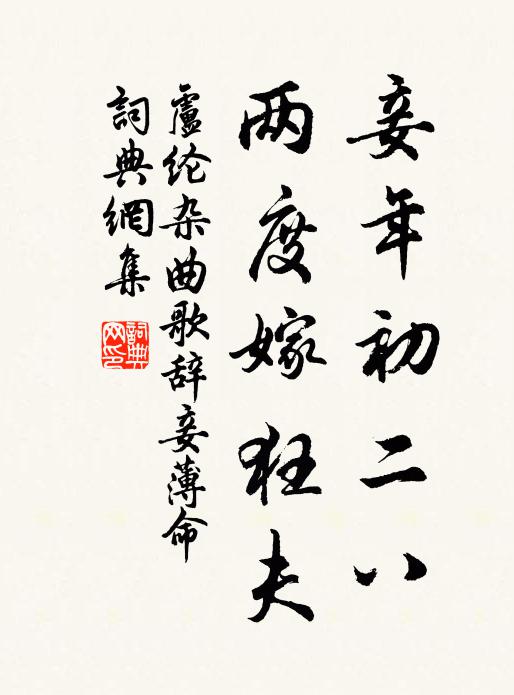 妾年初二八
两度嫁狂夫
盧纶杂曲歌辞妾薄命
詞典網集
詞典网印